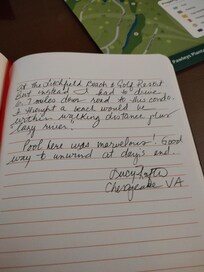 at the Litchfield Beach & Golf Resort
But instead I had to drive
2.7 miles down road to this condo.
I thought a beach would be
within walking distance plus
lazy river.
Pool here was marvelous! Good
way to unwind at day's end.
Lucy
Chesapeake VA